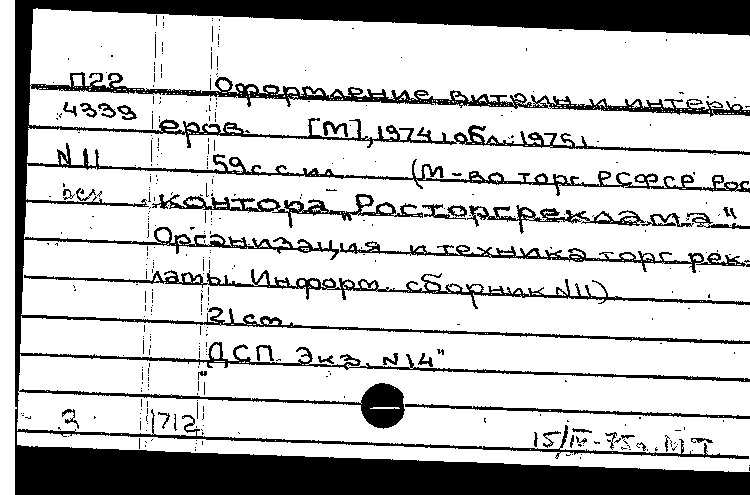 П22 Оформление витрин и интерь
4339 еров. [М], 1974, обл. 1975,
N 11 59 с. с ил. (М-во торг. РСФСР Рос
контора „Росторгреклама".
Организация и техника торг. рек-
ламы. Информ. сборник N11)
21 см.
„ДСП Экз. N14"
3 1712
15/IV-75г. М.Т.